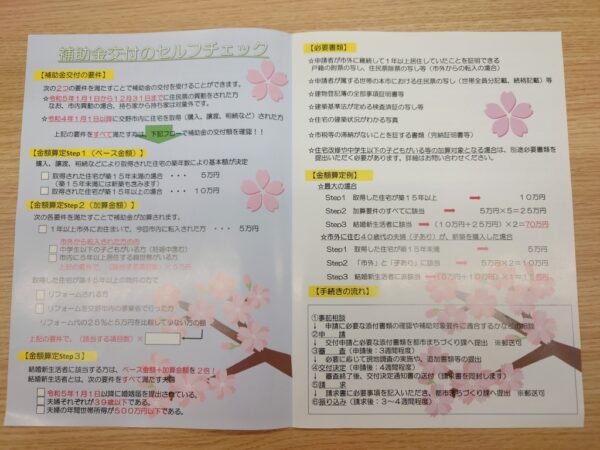 補助金交付のセルフチェック
【補助金交付の要件】
次の2つの要件を満たすことで補助金の交付を受けることができます。
☆令和5年1月1日から12月31日までに住民票の異動をされた方
なお、市内異動の場合、持ち家から持ち家は対象外です。
☆令和4年1月1日以降に交野市内に住宅を取得(購入、譲渡、相続など)された方
上記の要件をすべて満たす方は、下記フローで補助金の交付額を確認!!
【金額算定Step1(ベース金額)】
購入、譲渡、相続などにより取得された住宅の築年数により基本額が決定
□ 取得された住宅が築15年未満の場合 ・・・ 5万円
(築15年未満には新築も含みます)
□ 取得された住宅が築15年以上の場合 ・・・ 10万円
【金額算定Step2(加算金額)】
次の各要件を満たすことで補助が加算されます。
□ 1年以上市外にお住まいで、今回市内に転入された方 ・・・ 5万円
市外から転入された方の内
□ 中学生以下の子どもがいる方(妊娠中含む)
□ 市内に5年以上居住する親世帯がいる方
上記の要件で、(該当する項目数)×5万円
取得した住宅が築15年以上の物件の方で
□ リフォームされる方
□ リフォームを交野市内の事業者で行った方
リフォーム代の25%と5万円を比較して少ない方の額
上記の要件で、(該当する項目数)×
【金額算定Step3】
結婚新生活者に該当する方は、ベース金額+加算金額を2倍!
結婚新生活者とは、次の要件をすべて満たす夫婦
□ 令和5年1月1日以降に婚姻届を提出されている。
□ 夫婦それぞれが39歳以下である。
□ 夫婦の年間世帯所得が500万円以下である。
【必要書類】
☆申請者が市外に継続して1年以上居住していたことを証明できる
戸籍の附票の写し、住民票除票の写し等(市外からの転入の場合)
☆申請者が属する世帯の本市における住民票の写し(世帯全員分記載、続柄記載)等
☆建物登記簿の全部事項証明書
☆建築基準法が定める検査済証の写し等
☆住宅の建築状況がわかる写真
☆市税等の滞納がないことを証する書類(完納証明書等)
☆住宅改修や中学生以下の子どもがいる等の加算対象となる場合は、別途必要書類を
提出いただく必要があります。詳細はお問い合わせください。
【金額算定例】
☆最大の場合
Step1 取得した住宅が築15年以上 → 10万円
Step2 加算要件のすべてに該当 → 5万円×5=25万円
Step3 結婚新生活者に該当 → (10万円+25万円)×2=70万円
☆市外に住む40歳代の夫婦(子あり)が、新築を購入した場合
Step1 取得した住宅が築15年未満 → 5万円
Step2 「市外」と「子あり」に該当 → 5万円×2=10万円
Step3 結婚新生活者に非該当 → (5万円+10万円)×1=15万円
【手続きの流れ】
①事前相談
↓ 申請に必要な添付書類の確認や補助対象要件に適合するかなどの相談
②申 請
↓ 交付申請に必要な添付書類を都市まちづくり課へ提出 ※郵送可
③審 査(申請後:3週間程度)
↓ 必要に応じて現地調査の実施や、追加書類等の提出
④交付決定(申請後:4週間程度)
↓ 審査終了後、交付決定通知書の送付(請求書を同封します)
⑤請 求
↓ 請求書に必要事項を記入いただき、都市まちづくり課へ提出 ※郵送可
⑥振り込み(請求後:3~4週間程度)